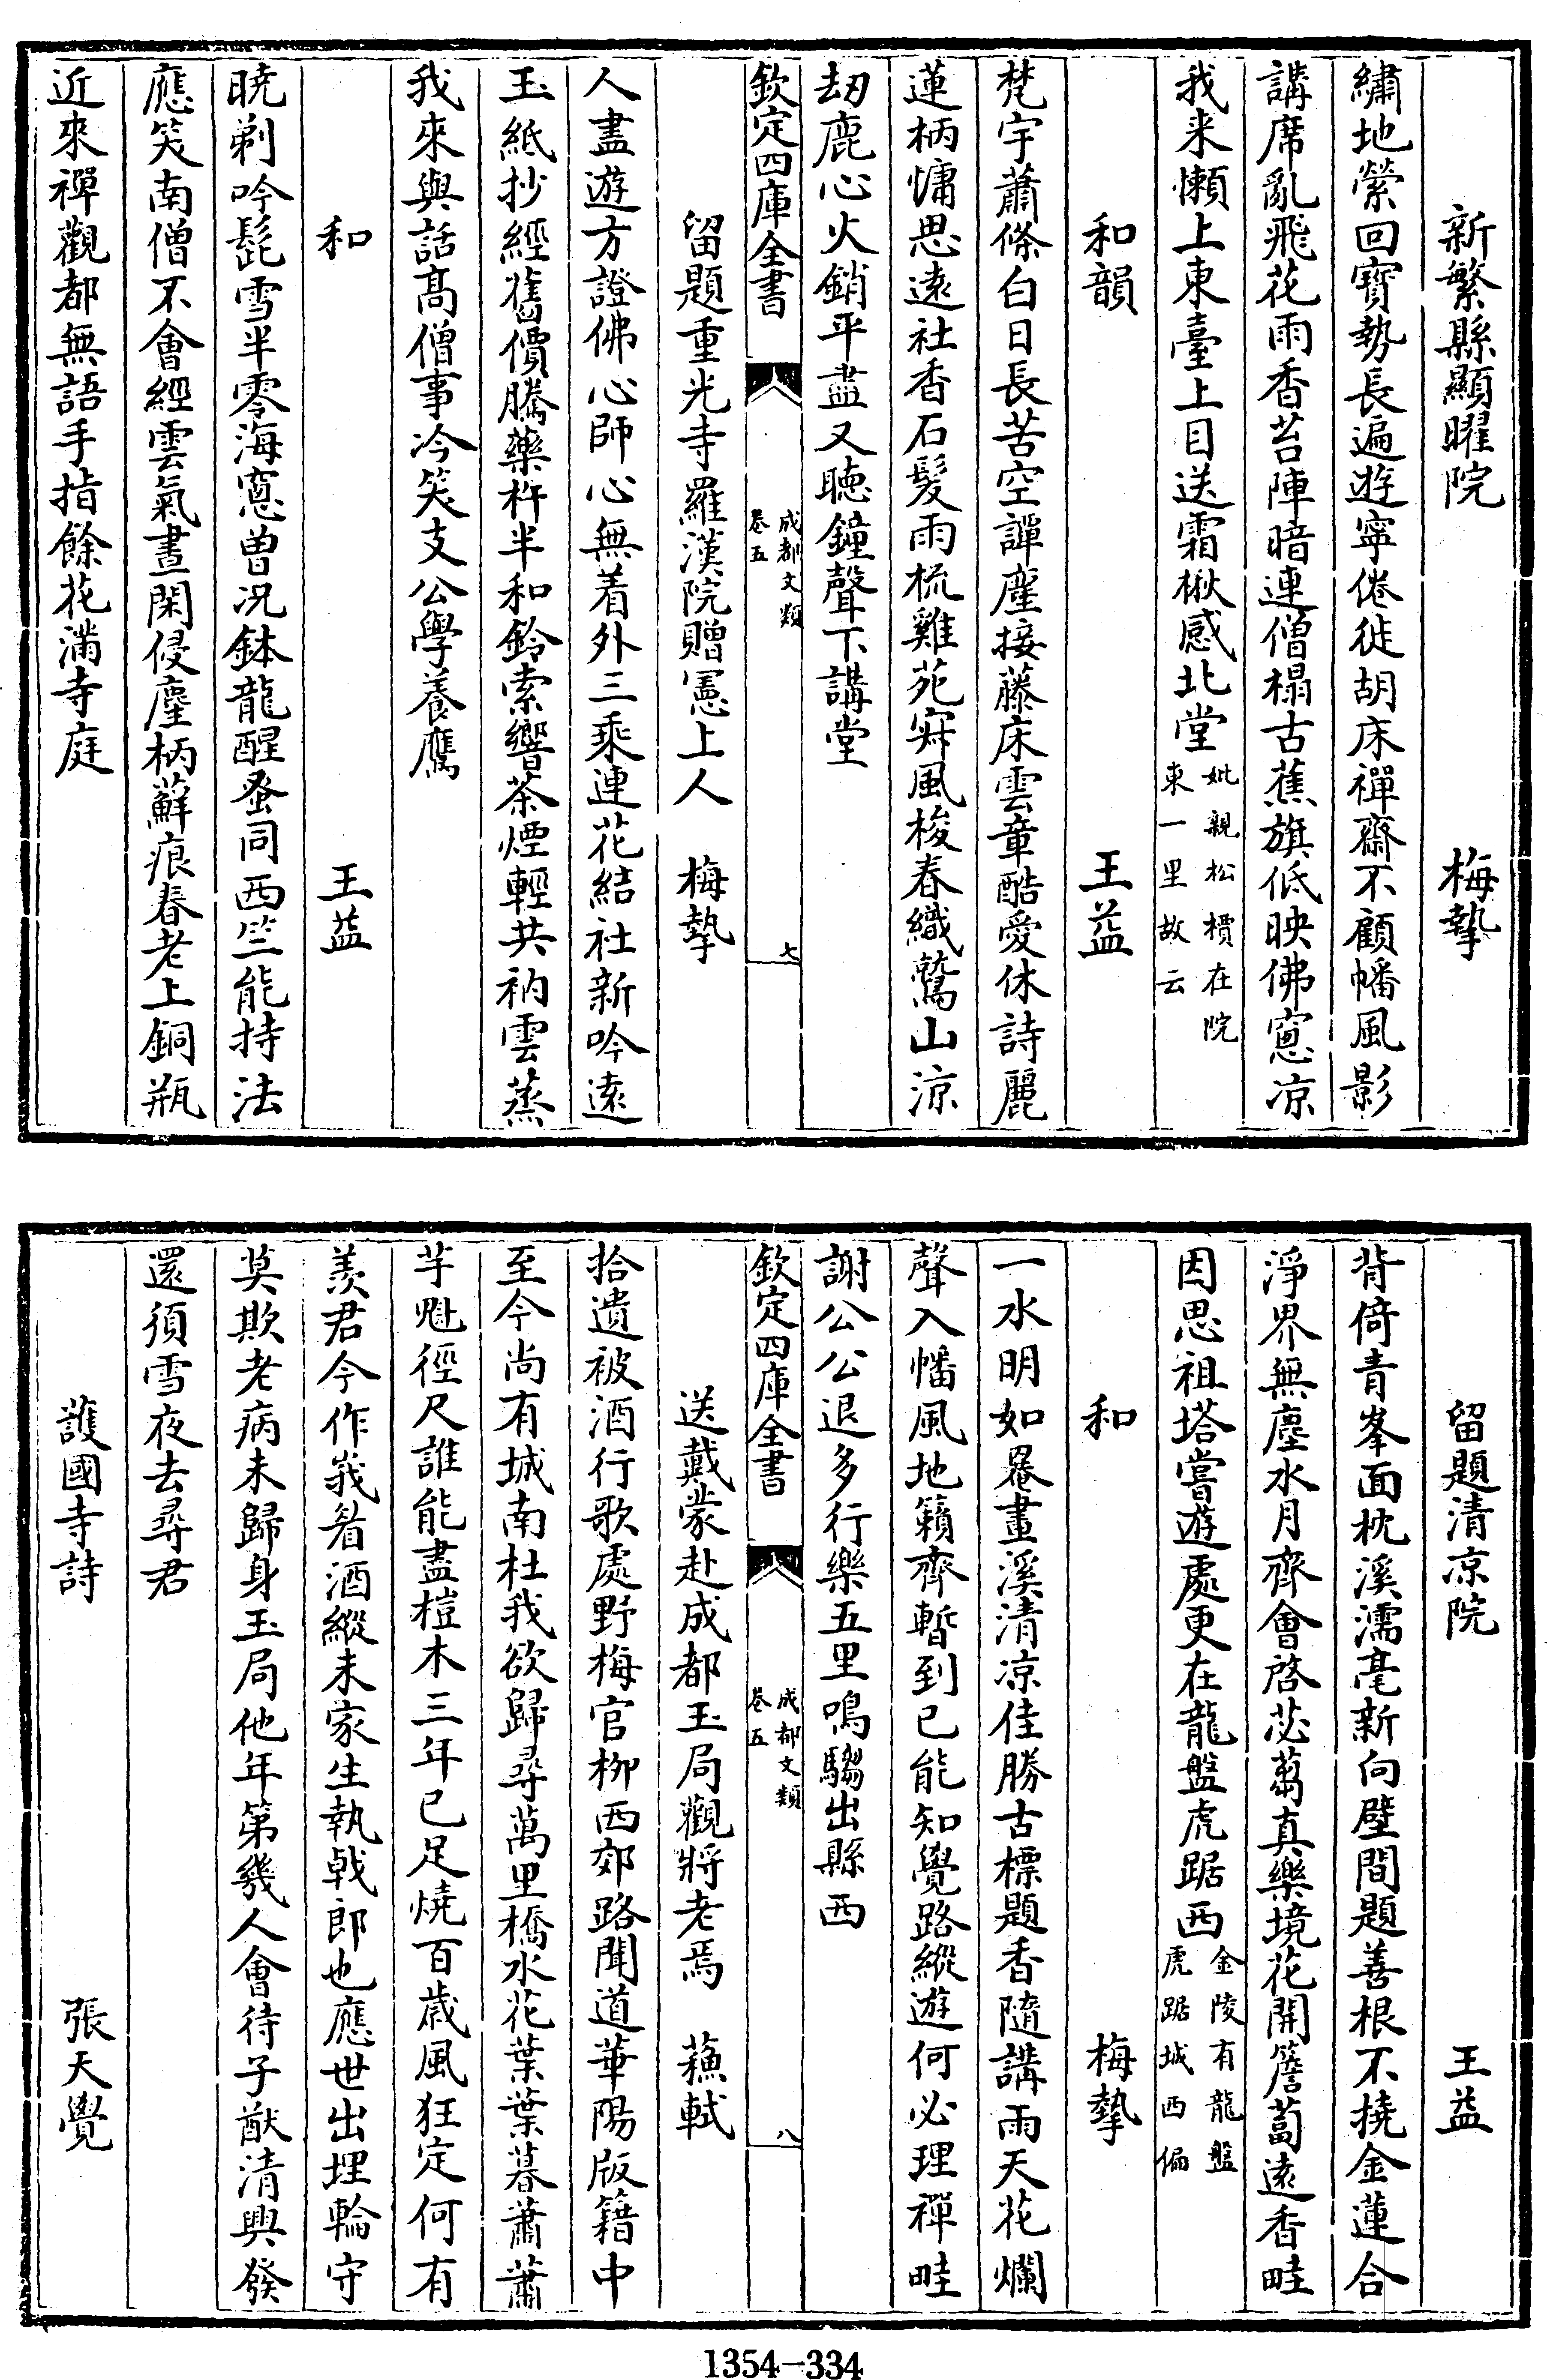 新繁縣顯曜院　梅摯
繡地縈回寳勢長遍遊寧倦徙胡床禪齋不顧幡風影
講席亂飛花雨香苔陣暗連僧榻古蕉旗低映佛窻凉
我来懶上東臺上目送霜楸感北堂妣親松檟在院東一里故云
和韻　王益
梵宇蕭條白日長苦空譚麈接藤床雲章酷愛休詩麗
蓮柄慵思遠社香石髮雨梳雞苑寂風梭春織鷲山涼
刼鹿心火銷平盡又聴鐘聲下講堂
欽定四庫全書　成都文類卷五　七
留題重光寺羅漢院贈憲上人　梅摯
人盡遊方證佛心師心無着外三乘連花結社新吟遠
玉紙抄經舊價騰藥杵半和鈴索響茶煙輕共衲雲蒸
我來與話髙僧事冷笑支公學養鷹
和　王益
曉剃吟髭雪半零海窻曽况鉢龍醒蚤同西竺能持法
應笑南僧不會經雲氣晝閑侵麈柄蘚痕春老上銅瓶
近來禪觀都無語手指餘花滿寺庭
留題清凉院　王益
背倚青峯面枕溪濡毫新向壁間題善根不撓金蓮合
淨界無塵水月齊會啓苾蒭真樂境花開簷蔔逺香畦
因思祖塔嘗遊處更在龍盤虎踞西金陵有龍盤虎踞城西偏
和　梅摯
一水明如罨畫溪清凉佳勝古標題香隨講雨天花爛
聲入幡風地籟齊暫到已能知覺路縱遊何必理禪畦
謝公公退多行樂五里鳴騶出縣西
欽定四庫全書　成都文類卷五　八
送戴蒙赴成都玉局觀將老焉　蘓軾
拾遺被酒行歌處野梅官柳西郊路聞道華陽版籍中
至今尚有城南杜我欲歸尋萬里橋水花葉葉暮蕭蕭
芋魁徑尺誰能盡榿木三年已足燒百歳風狂定何有
羨君今作峩眉酒縱未家生執戟郎也應世出埋輪守
莫欺老病未歸身玉局他年第幾人會待子猷清興發
還須雪夜去尋君
護國寺詩　張天覺
1354-334